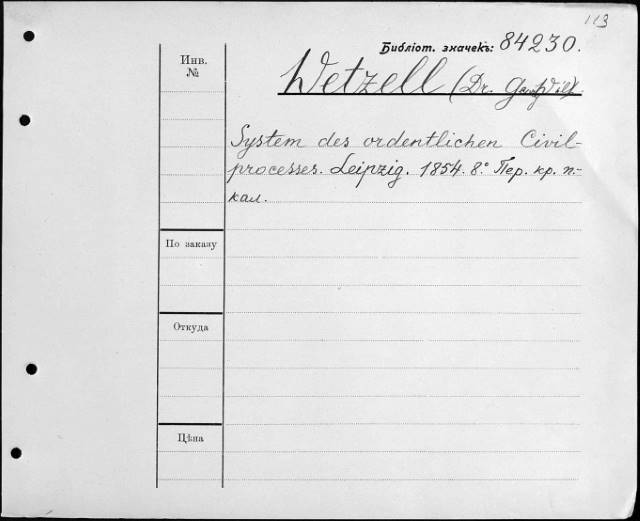 113
Библіот. значекъ: 84230.
Инв.
№
Wetzell (Dr.
System des ordentlichen Civil-
processes. Leipzig. 1854. 8.° Пер. кр. п.-
кал.
По заказу
Откуда
Цѣна